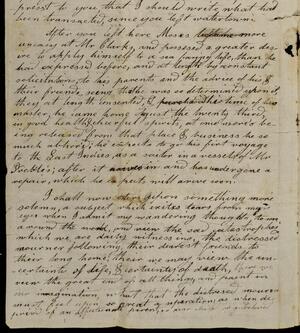 prest to you that I should write, what had
been transacted, since you left watertown.
After you left here Moses became more
uneasy at Mr Clarks, and possesed a greater des-
ire to apply himself to a sea faring life, than he
had expresed before, and at length by constant
solicitations, to his parents and the advice of his
friends, seeing that he was so determined upon it,
they at length consented, & purchased the time of his
master, he came home August, the twenty third,
in good health & chearful spirits, at once more be-
ing released from that place & business he so
much abhors; he expects to go his first voyage
to the East Indies, as a sailor in a vessel of Mr
after it and has undergone a
repair, which he expects will arive soon.
I shall now something more
solemn, a subject which excites tears from my
eyes when I admit my wandering thoughts, to turn
around the world, and view the sad catastrophes
which we are daily witness one, the distressed
mourner following, their dearest friends, to
their long home; there we may view the un-
certainty of life, & certainty of death, there we
view the great end of all things, and parent in
no imagination, is but that the distressed mourn-
must feel upon so great a separation as when de-
prived of an affectionate parent,